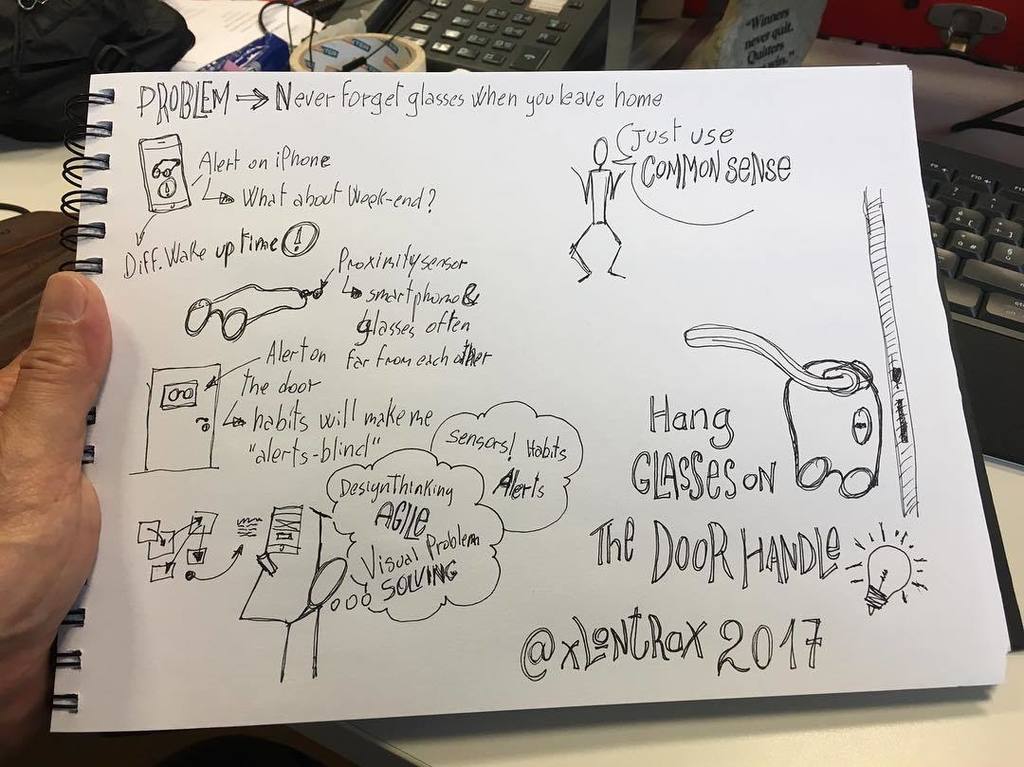 PROBLEM → Never Forget glasses when you leave home
Alert on iPhone
↳ What about Week-end?
Diff. Wake up time !
Proximity sensor
↳ smartphone &
glasses often
far from each other
Alert on
the door
↳ habits will make me
"alerts-blind"
Sensors! Habits
Alerts
DesignThinking
AGILE
Visual Problem
SOLVING
Just use
COMMON SENSE
Hang
GLASSES ON
The DOOR HANDLE
@xLontrax 2017
"Winners
never quit.
Quitters